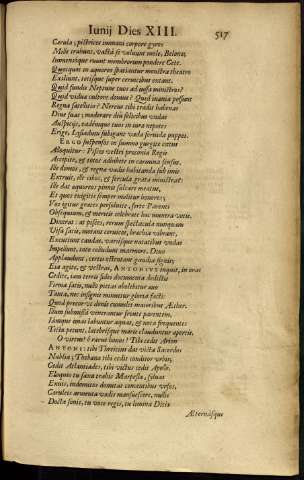 Iunij Dies XIII.
517
Cerula; pistrices summant corpore gyros
Mole trahunt, vasta se voluunt mole, Balenæ,
Immensoque ruunt membrorum pondere Cete.
Quæcumque in æquoreo spatiantur monstra theatro
Exiliunt, totisque super ceruicibus extant.
Quid fundis Neptune tuos ad iussa
Quid vidua cubare domus? Quid inania possunt
Regna satellitia? Nereus tibi tradit habenas
Diue suas; moderare diu felicibus vndas
Auspicijs, eademque tuos in iura nepotes
Erige, Lysiaduni subigant vada feruida puppes.
ERGO suspensus in summo gurgite cœtus
Alloquitur: Pisces vestri præconia Regis
Accipite, & totos adhibete in carmina sensus.
Ille domos, & regna vadis habitanda sub imis
Extruit, ille cibos, & fercula grata ministrat:
Ille dat æquoreas pinnis sulcare
Et quos exigitis semper molitur honores;
Vos igitur grates persoluite, ferte Patronis
Obsequium, & meritis celebrate hoc numina votis.
Dixerat: ast pisces, rerum spectacula nunquam
Visa satis, motant ceruices, brachia vibrant,
Excutiunt caudas, varijsque natatibus vndas
Impellunt, toto colludunt marmore, Diuo
Applaudunt, certus ostentant gaudia signis;
Eia agite, & vestras, ANTONIVS inquit, in oras
Cedite, iam terris fides documenta dedistis
Firma satis, nullo pietas abolebitur æuo
Tanta, nec insignis minuetur gloria facti:
Quid precor vt donis cumulet maioribus Æther.
Illum submissis venerantur fronte parentem,
Idemque imas labuntur aquas, & tecta frequentes
Tecta petunt, latebrisque maris clauduntur apertis.
O virtus! ô rarus honor! Tibi cedit Arion
ANTONI: tibi Threicius das victa Sacerdos
Nablia; Thebane tibi cedit conditor vrbis,
Cedit Atlantiades, tibi victus cedit Apollo.
Eloquio tu saxa trahis Marpesia, feluas
Euris, indomitos domitas comitantibus vrsos,
Cæruleos armenta vadis mansuescere, nullis
Docta sonis, tu voce regis, tu lumina Ditis
Æternásque